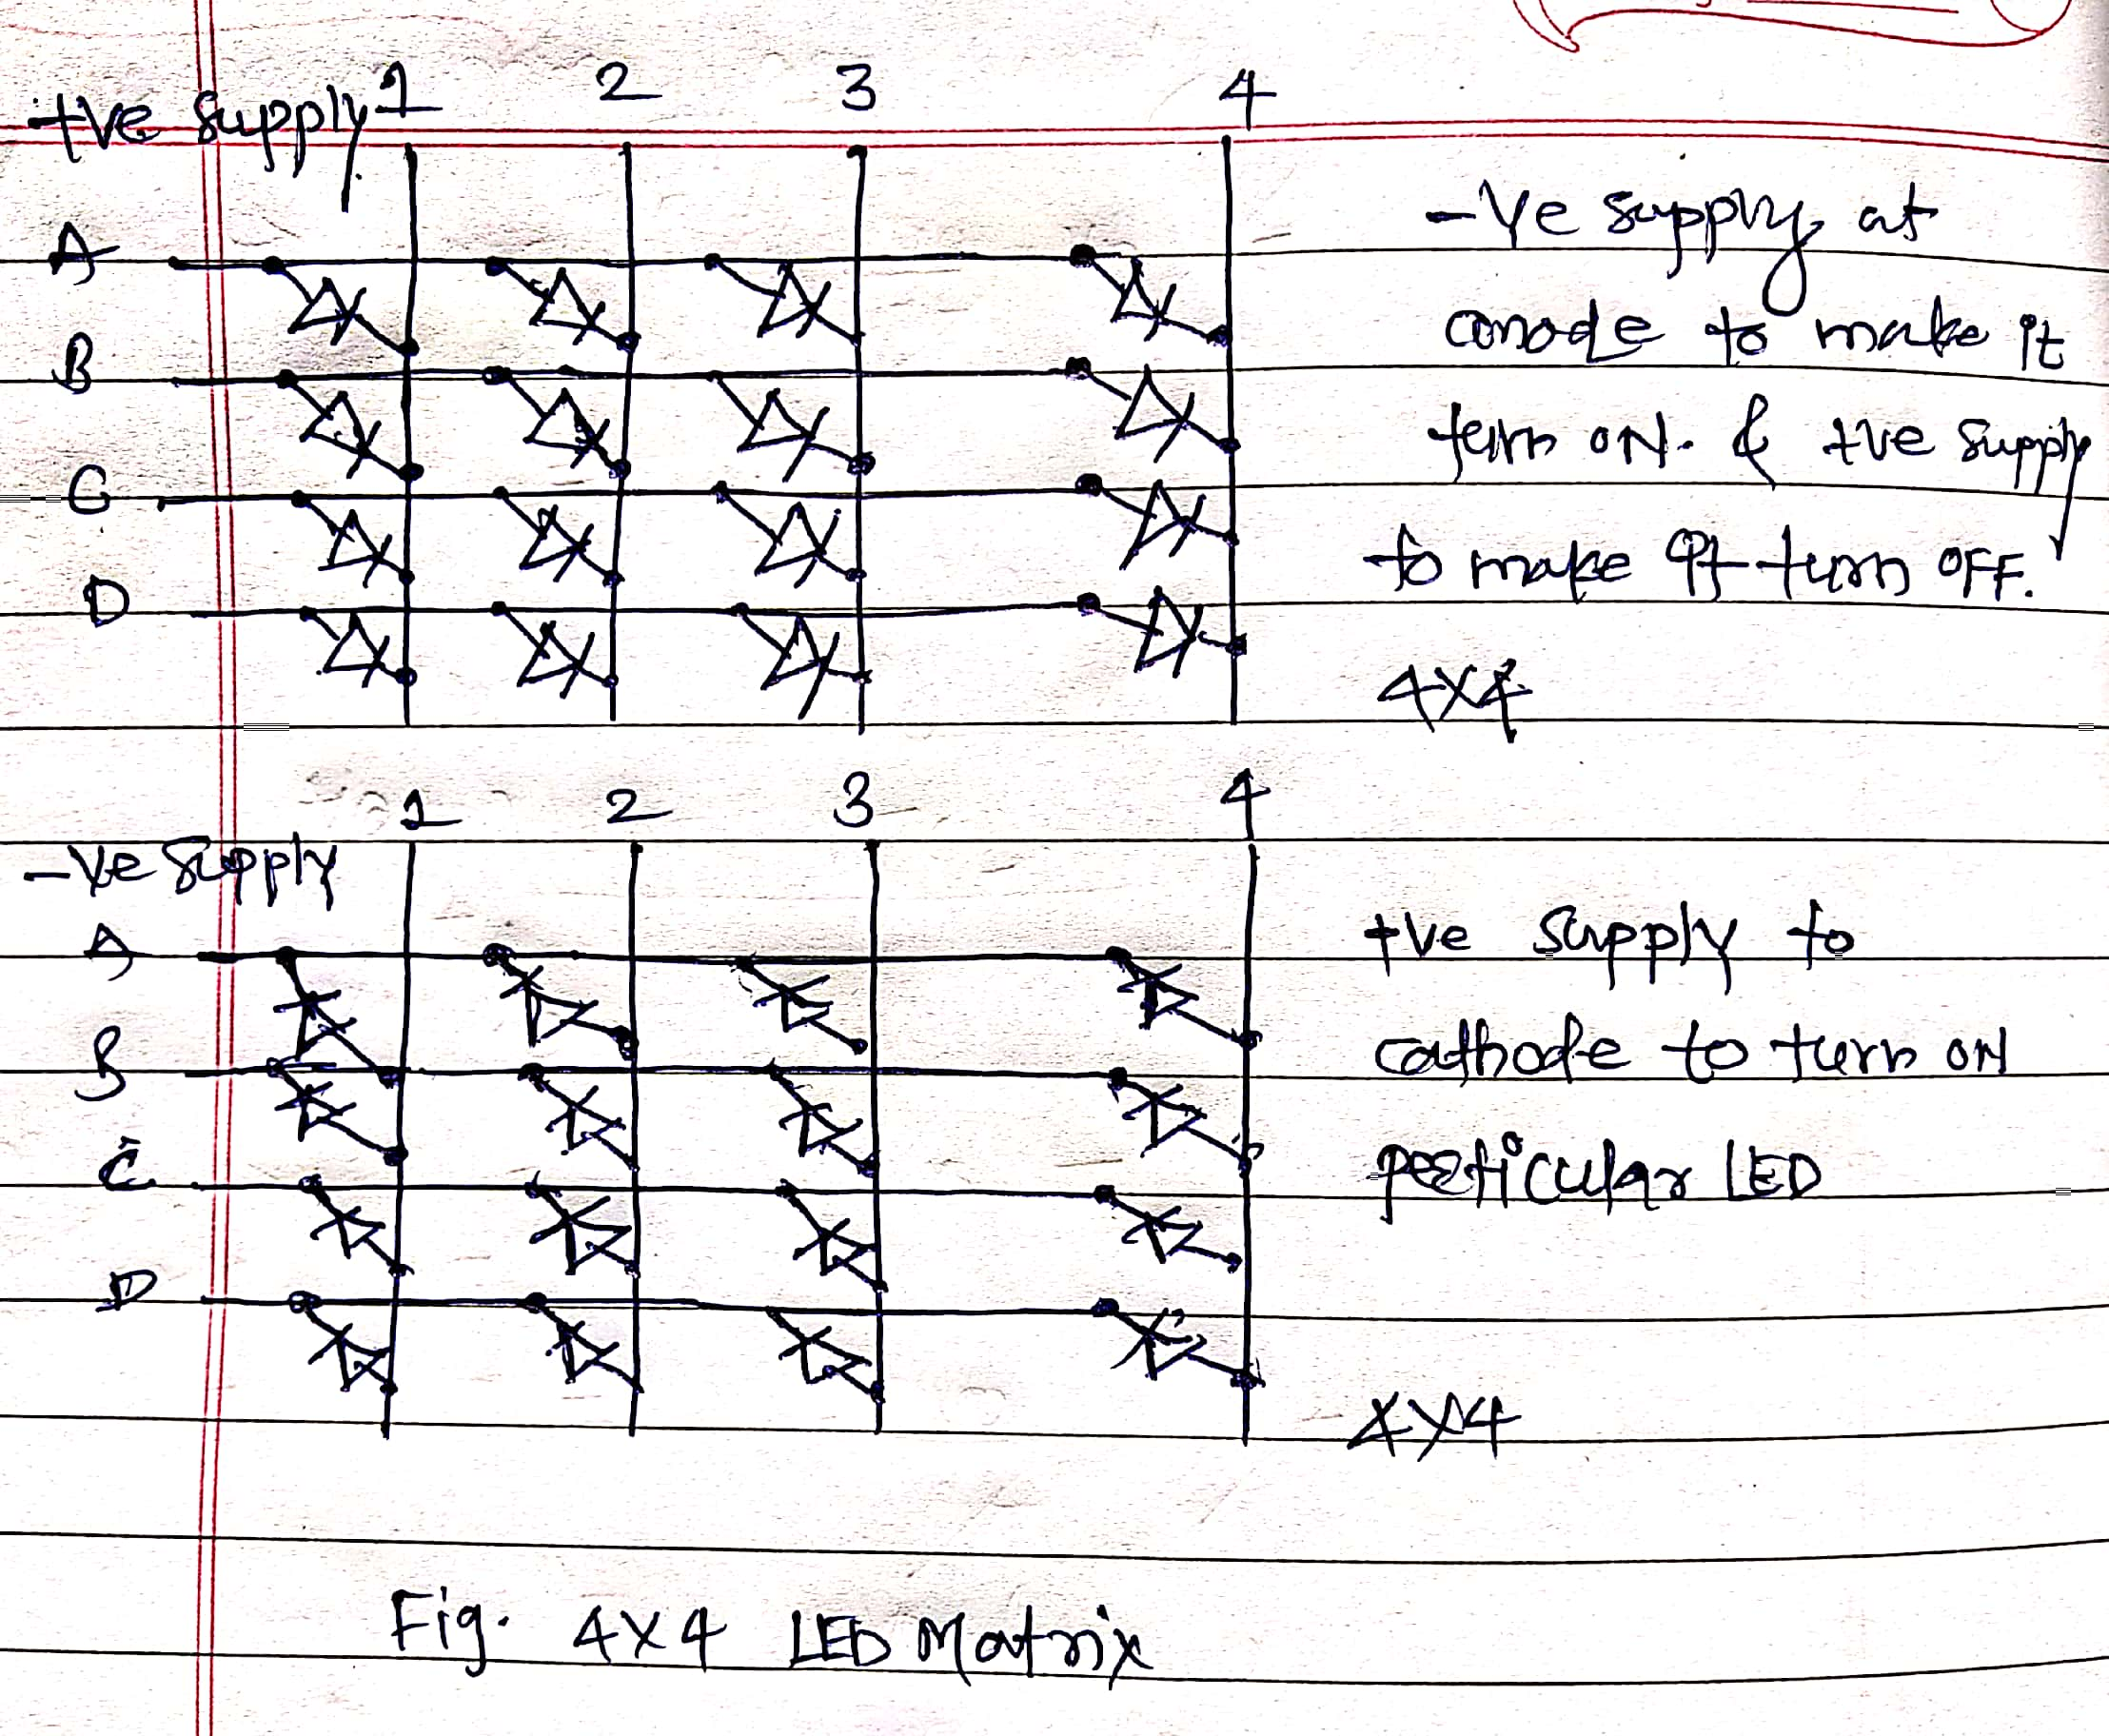 1 2 3 4
+ve supply
A
B
C
D
-ve supply at
anode to make it
turn ON. & +ve supply
to make it turn OFF.
4x4
1 2 3 4
-ve supply
A
B
C
D
+ve supply to
cathode to turn ON
perticular LED
4x4
Fig. 4x4 LED Matrix